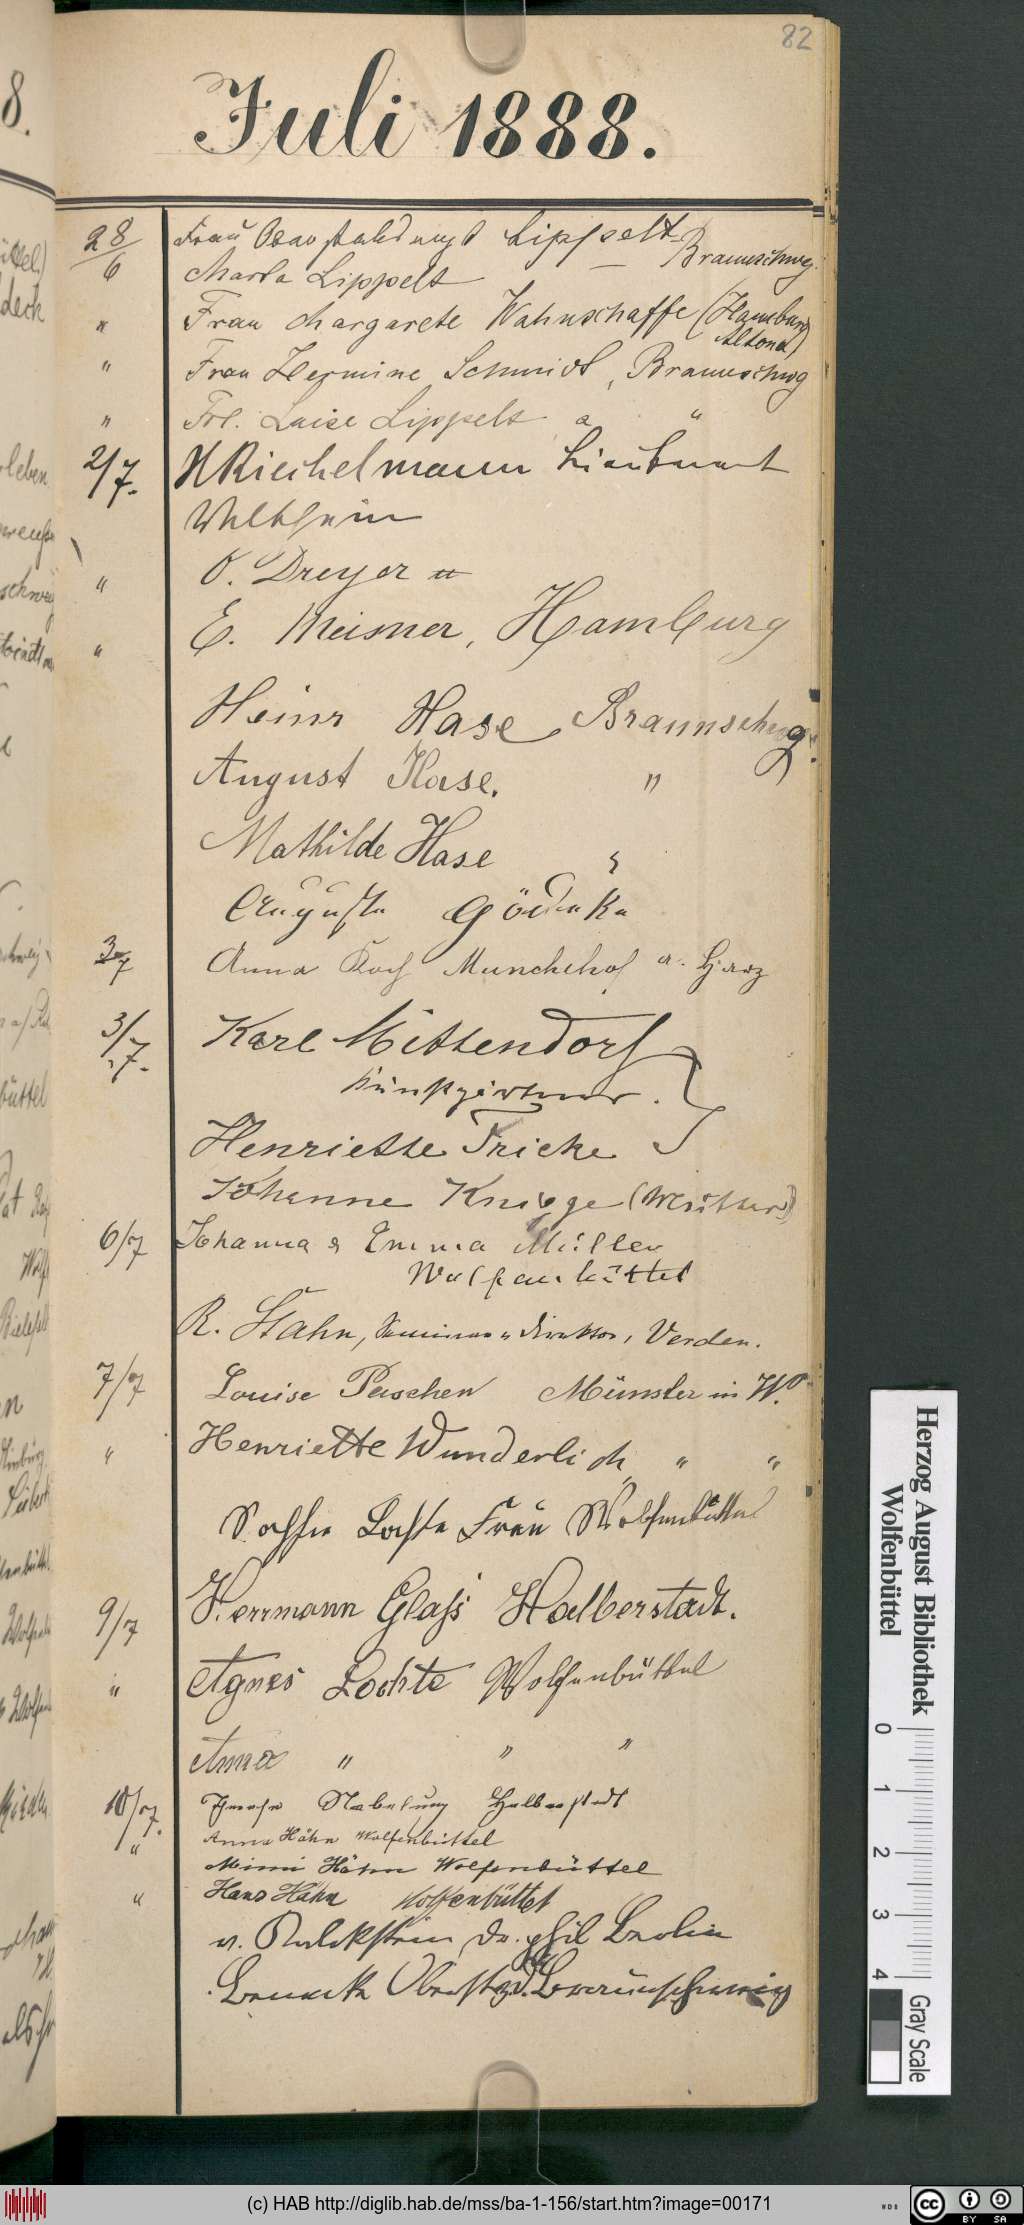 82
Juli 1888.
28/6 Frau Lippelt Braunschwg.
Marta Lippelt
" Frau Margarete Wahnschaffe (Hamburg Altona)
" Frau Hermine Schmidt, Braunschwg
" Frl. Luise Lippelt "
2/7. H Riechelmann Lieutnant
Veltheim
" O. Dreyer u
" E. Meisner, Hamburg
Heinr Hase, Braunschwg.
August Hase. "
Mathilde Hase "
Auguste Gödeke
3/7 Anna Koch Munchehof a. Harz
3/7. Karl Mittendorf
Kunstgärtner.
Henriette Fricke
Johanne Knigge
6/7 Johanna & Emma Müller
Wolfenbüttel
R. Stahn, Seminar-Direktor, Verden.
7/7 Louise Paschen Münster in W.
" Henriette Wunderlich " "
Sophie Lochte Frau Wolfenbüttel
9/7 Herrmann Glaß Halberstadt.
" Agnes Lochte Wolfenbüttel
Anna " " "
10/7. Nebelung Halberstadt
" Anna Hähn Wolfenbüttel
Mimi Hähn Wolfenbüttel
" Hans Hähn Wolfenbüttel
v. Kalckstein Dr. phil Berlin
Oberst z. D. Braunschweig
Herzog August Bibliothek
Wolfenbüttel
0 1 2 3 4
Gray Scale
(c) HAB http://diglib.hab.de/mss/ba-1-156/start.htm?image=00171
WDB
cc BY SA